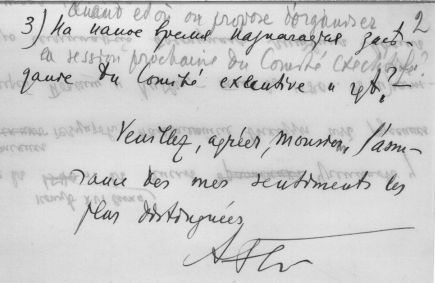 Quand et où on propose d'organiser
3) На какое время назначается засе-
la session prochaine du Comité Exécutif?
дание du Comité exécutive и где?
Veuillez, agréer, monsieur, l'assu-
rance des mes sentiments les
plus distinguées